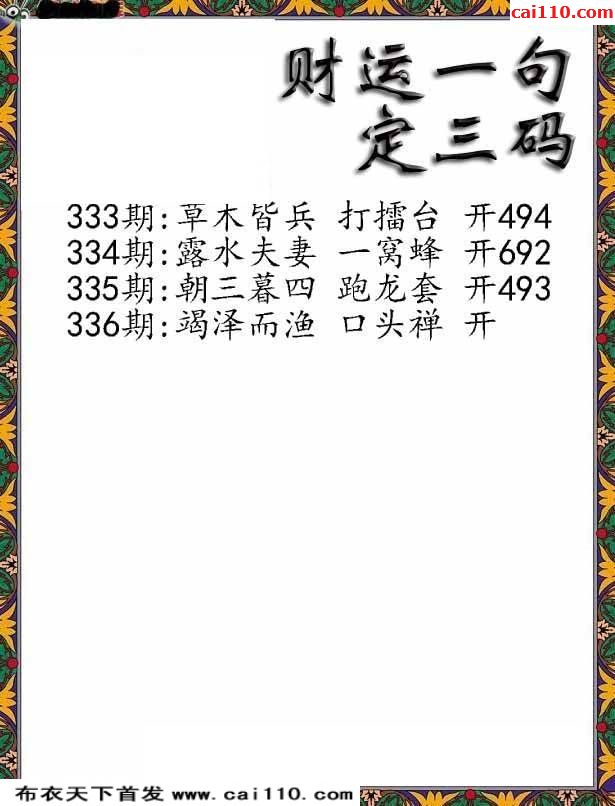 cai110.com
财运一句
定三码
333期:草木皆兵 打擂台 开494
334期:露水夫妻 一窝蜂 开692
335期:朝三暮四 跑龙套 开493
336期:竭泽而渔 口头禅 开
布衣天下首发 www.cai110.com